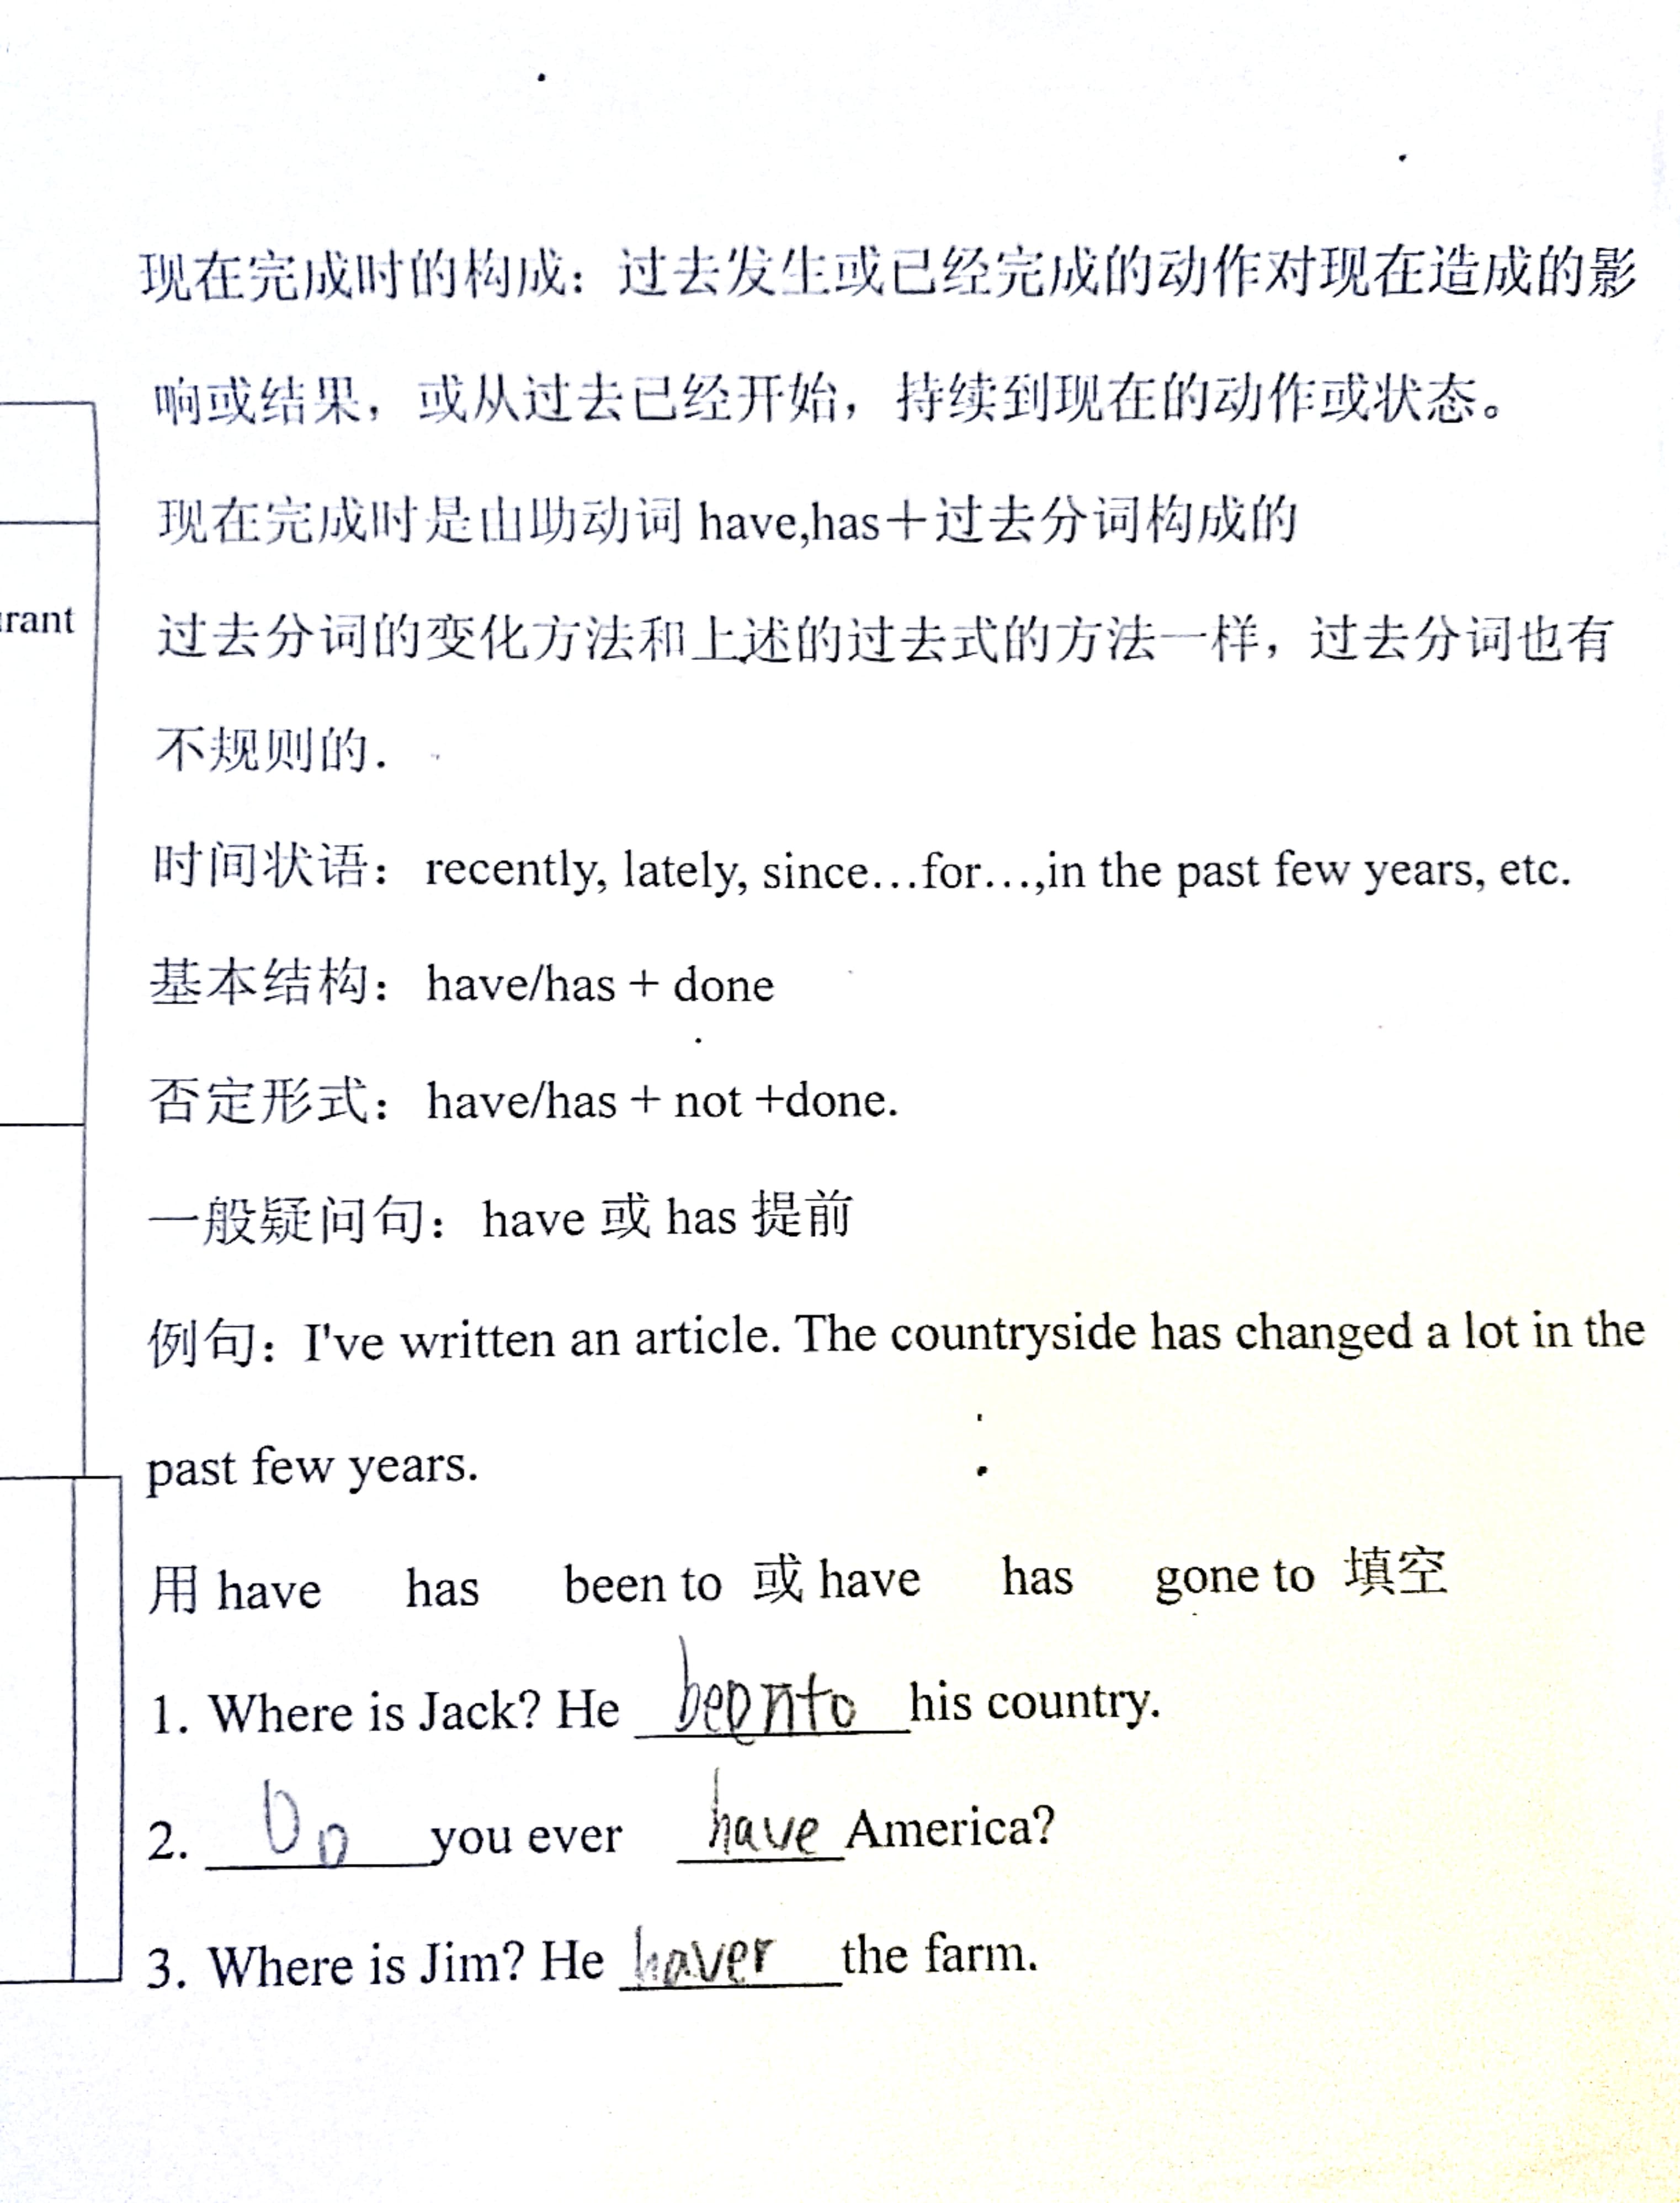 现在完成时的构成：过去发生或已经完成的动作对现在造成的影
响或结果，或从过去已经开始，持续到现在的动作或状态。
现在完成时是由助动词 have,has＋过去分词构成的
rant
过去分词的变化方法和上述的过去式的方法一样，过去分词也有
不规则的.
时间状语：recently, lately, since…for…,in the past few years, etc.
基本结构：have/has + done
否定形式：have/has + not +done.
一般疑问句：have 或 has 提前
例句：I've written an article. The countryside has changed a lot in the
past few years.
用 have has been to 或 have has gone to 填空
1. Where is Jack? He beento his country.
2. Do you ever have America?
3. Where is Jim? He haver the farm.